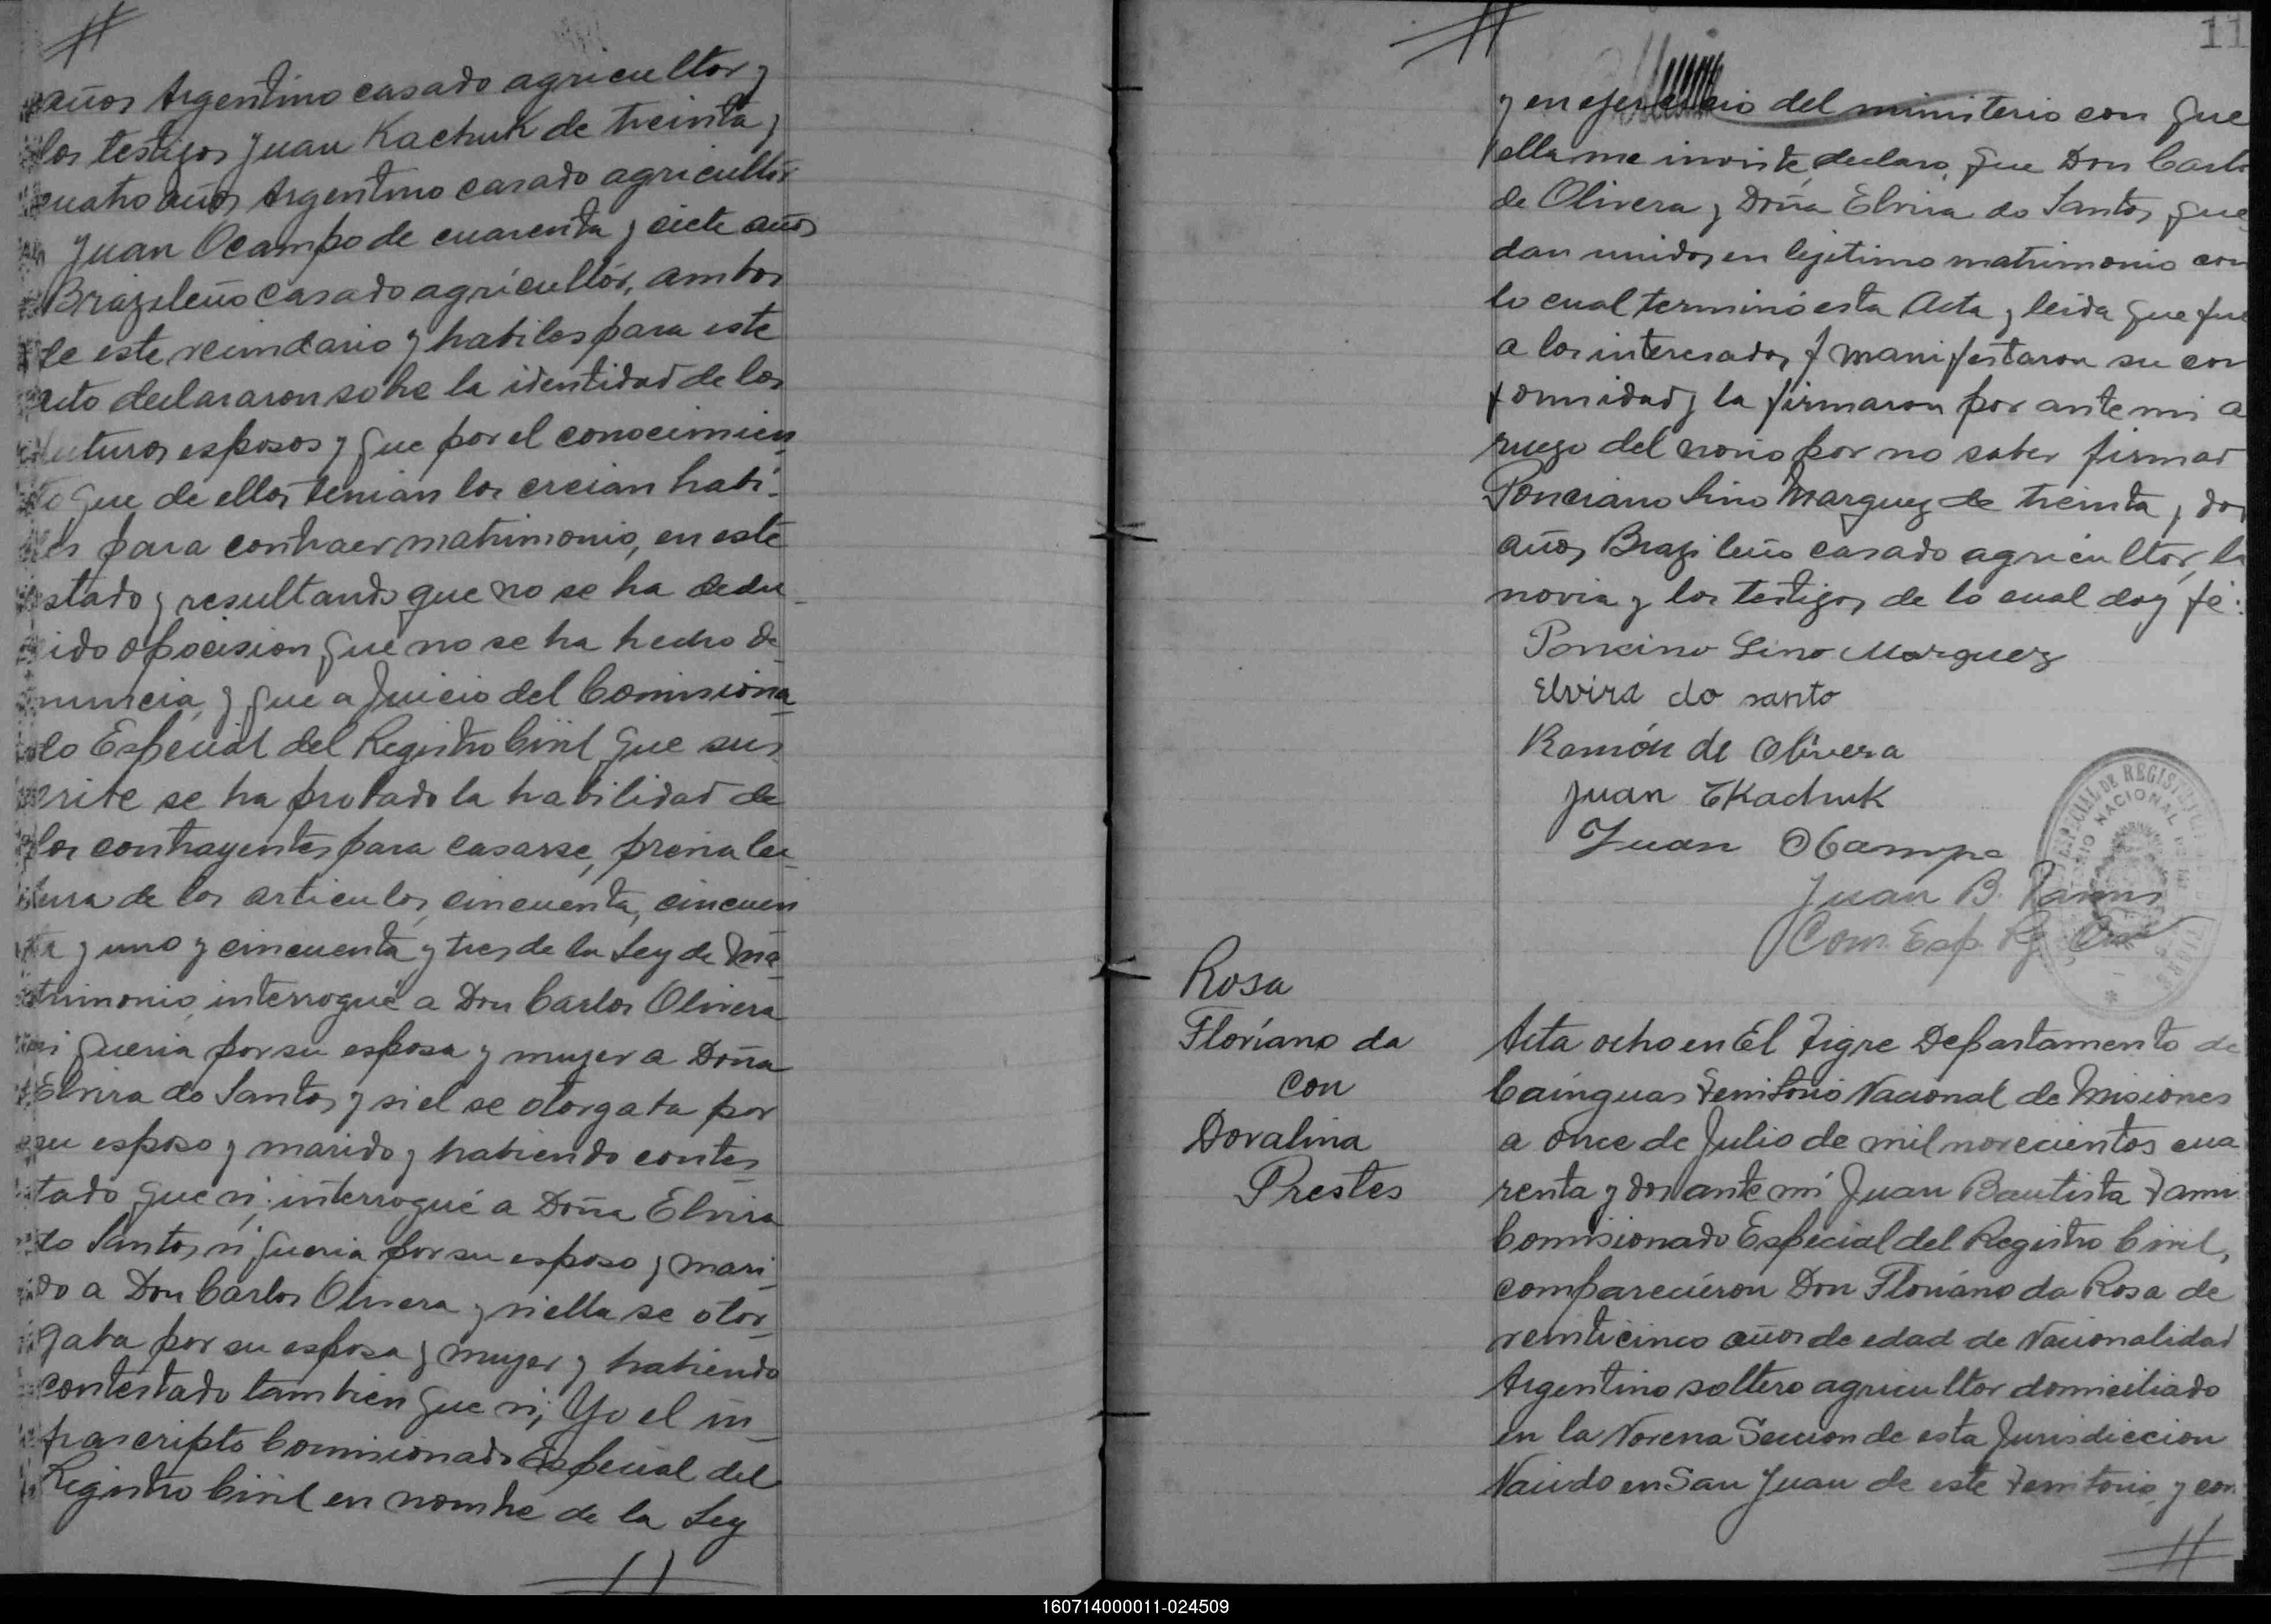 años Argentino casado agricultor y
los testigos Juan Kachuk de treinta y
cuatro años Argentino casado agricultor
Juan Ocampo de cuarenta y ciete años
Brazileño casado agricultór, ambos
de este vecindario y habiles para este
acto declararon sobre la identidad de los
futuros esposos y que por el conocimien
to que de ellos tenian los creian habi-
les para contraer matrimonio, en este
estado y resultando que no se ha dedu-
cido opocision que no se ha hecho de
nuncia, y que a Juicio del Comisiona
do Especial del Registro Civil que sus-
cribe se ha probado la habilidad de
los contrayentes para casarse, previa lec-
tura de los articulos, cincuenta, cincuen
ta y uno y cincuenta y tres de la Ley de Ma
trimonio, interrogué a Don Carlos Olivera
si queria por su esposa y mujer a Doña
Elvira do Santos y si el se otorgaba por
su esposo y marido y habiendo contes
tado que si; interrogué a Doña Elvira
do Santos si queria por su esposo y mari
do a Don Carlos Olivera y si ella se otor
gaba por su esposa y mujer y habiendo
contestado tambien que si; Yo el in
frascripto Comisionado Especial del
Registro Civil en nombre de la Ley
11
y en ejercicio del ministerio con que
ella me inviste, declaro, que Don Carlo
de Olivera y Doña Elvira do Santos, que
dan unidos en legitimo matrimonio con
lo cual terminó esta Acta y leida que fue
a los interesados y manifestaron su con
formidad y la firmaron por ante mi a
ruego del novio por no saber firmar
Ponciano Lino Marquez de treinta y dos
años Brazileño casado agricultor, la
novia y los testigos de lo cual doy fé:
Poncino Lino Marquez
Elvira do santo
Ramón de Olivera
Juan TKachuk
Juan Ocampo
Juan B.
Com. Esp. Rg.
Rosa
Floríano da
con
Dovalina
Prestes
Acta ocho en El Tigre Departamento de
Cainguas Territorio Nacional de Misiones
a once de Julio de mil novecientos cua
renta y dos ante mí Juan Bautista
Comisionado Especial del Registro Civil,
comparecieron Don Floriano da Rosa de
veinticinco años de edad de Nacionalidad
Argentino soltero agricultor domiciliado
en la Novena Seccion de esta Jurisdiccion
Nacido en San Juan de este Territorio, y con
160714000011-024509